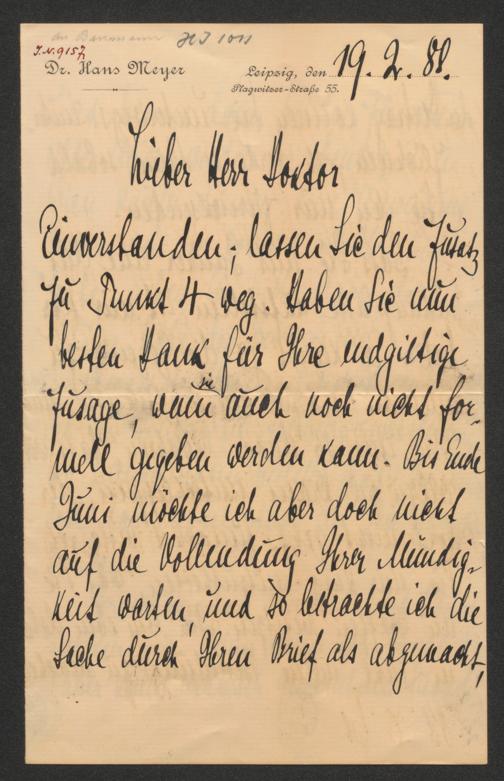 an Baumann HJ 1011
J.N. 9157,
Dr. Hans Meyer
Leipzig, den 19. 2. 88.
Plagwitzer-Straße 55.
Lieber Herr Doktor
Einverstanden; lassen Sie den Zusatz
zu Punkt 4 weg. Haben Sie nun
besten Dank für Ihre endgiltige
Zusage, wenn sie auch noch nicht for-
mell gegeben werden kann. Bis Ende
Juni möchte ich aber doch nicht
auf die Vollendung Ihrer Mündig-
keit warten, und so betrachte ich die
Sache durch Ihren Brief als abgemacht,